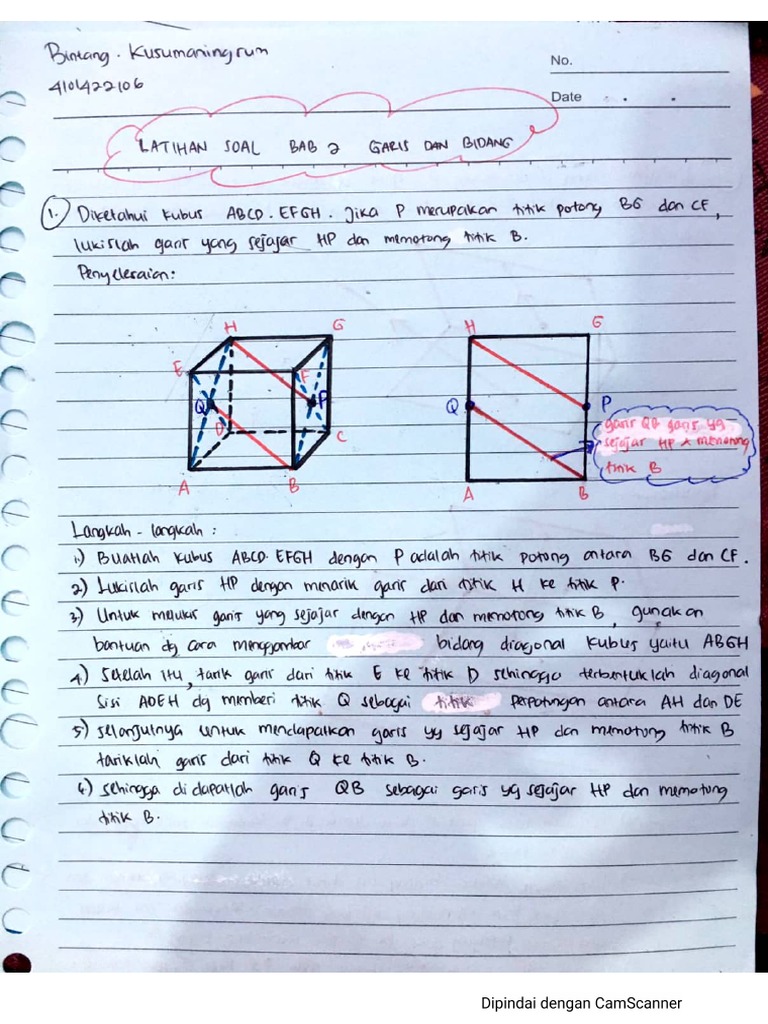 Bintang. Kusumaningrum
4101422106
No.
Date
LATIHAN SOAL BAB 2 GARIS DAN BIDANG
1. Diketahui kubus ABCD.EFGH. Jika P merupakan titik potong BG dan CF,
lukislah garis yang sejajar HP dan memotong titik B.
Penyelesaian:
H G
E F
Q P
D C
A B
H G
Q P
A B
garis QB garis yg
sejajar HP & memotong
titik B
Langkah - langkah :
1.) Buatlah kubus ABCD.EFGH dengan P adalah titik potong antara BG dan CF.
2) Lukislah garis HP dengan menarik garis dari titik H ke titik P.
3) Untuk melukis garis yang sejajar dengan HP dan memotong titik B, gunakan
bantuan dg cara menggambar bidang diagonal kubus yaitu ABGH
4) Setelah itu, tarik garis dari titik E ke titik D sehingga terbentuklah diagonal
sisi ADEH dg memberi titik Q sebagai titik perpotongan antara AH dan DE
5) Selanjutnya untuk mendapatkan garis yg sejajar HP dan memotong titik B
tariklah garis dari titik Q ke titik B.
6) Sehingga didapatlah garis QB sebagai garis yg sejajar HP dan memotong
titik B.
Dipindai dengan CamScanner